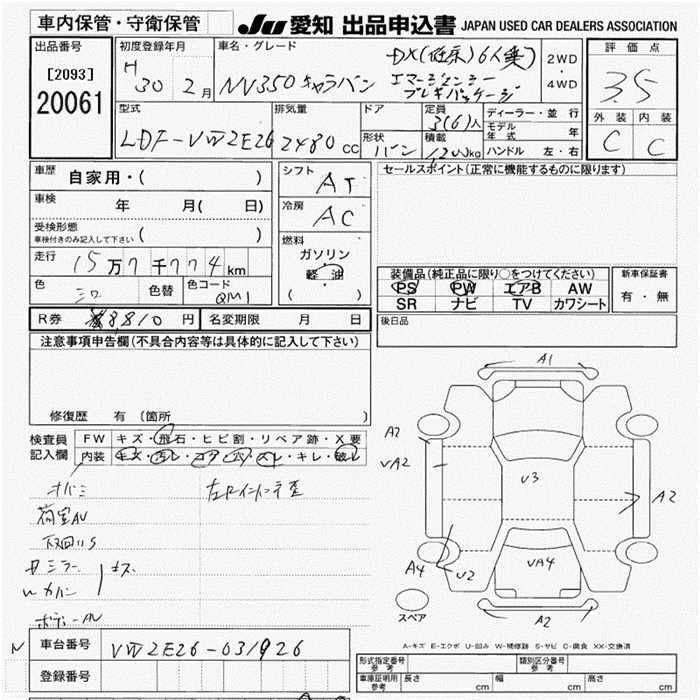 車内保管・守衛保管
JU 愛知 出品申込書 JAPAN USED CAR DEALERS ASSOCIATION
出品番号
[2093]
20061
初度登録年月
H 30 2月
車名・グレード
NV350キャラバン
DX(低床)6人乗
エマージェンシー
ブレーキパッケージ
2WD
・
4WD
評価点
3.5
外装 内装
C C
型式
LDF-VW2E26
排気量
2480cc
ドア
形状
バン
定員
3(6)人
積載
1200kg
ディーラー・並行
モデル年式 年
ハンドル 左・右
車歴 自家用・( )
車検 年 月( 日)
受検形態
車検付きのみ記入して下さい ( )
走行 15万7千774km
色 シロ 色替 色コード QM1
シフト AT
冷房 AC
燃料
ガソリン
軽油
( ・ )
セールスポイント(正常に機能するものに限ります)
装備品(純正品に限り○をつけてください)
PS PW エアB AW
SR ナビ TV カワシート
新車保証書
有・無
R券 8,810円 名変期限 月 日
後日品
注意事項申告欄(不具合内容等は具体的に記入して下さい)
修復歴 有 (箇所 )
検査員記入欄
FW キズ・飛石・ヒビ割・リペア跡・X要
内装 キズ・汚レ・コゲ・穴・スレ・キレ・破レ
荷室AU
キズ
A1
A2
UA2
U3
A2
A4
U2
UA4
A2
スペア
A-キズ E-エクボ U-凹み W-補修跡 S-サビ C-腐食 XX-交換済
車台番号 VW2E26-031926
登録番号
形式指定番号 参考
類別区分番号 参考
車庫証明用 参考 長さ cm 幅 cm 高さ cm